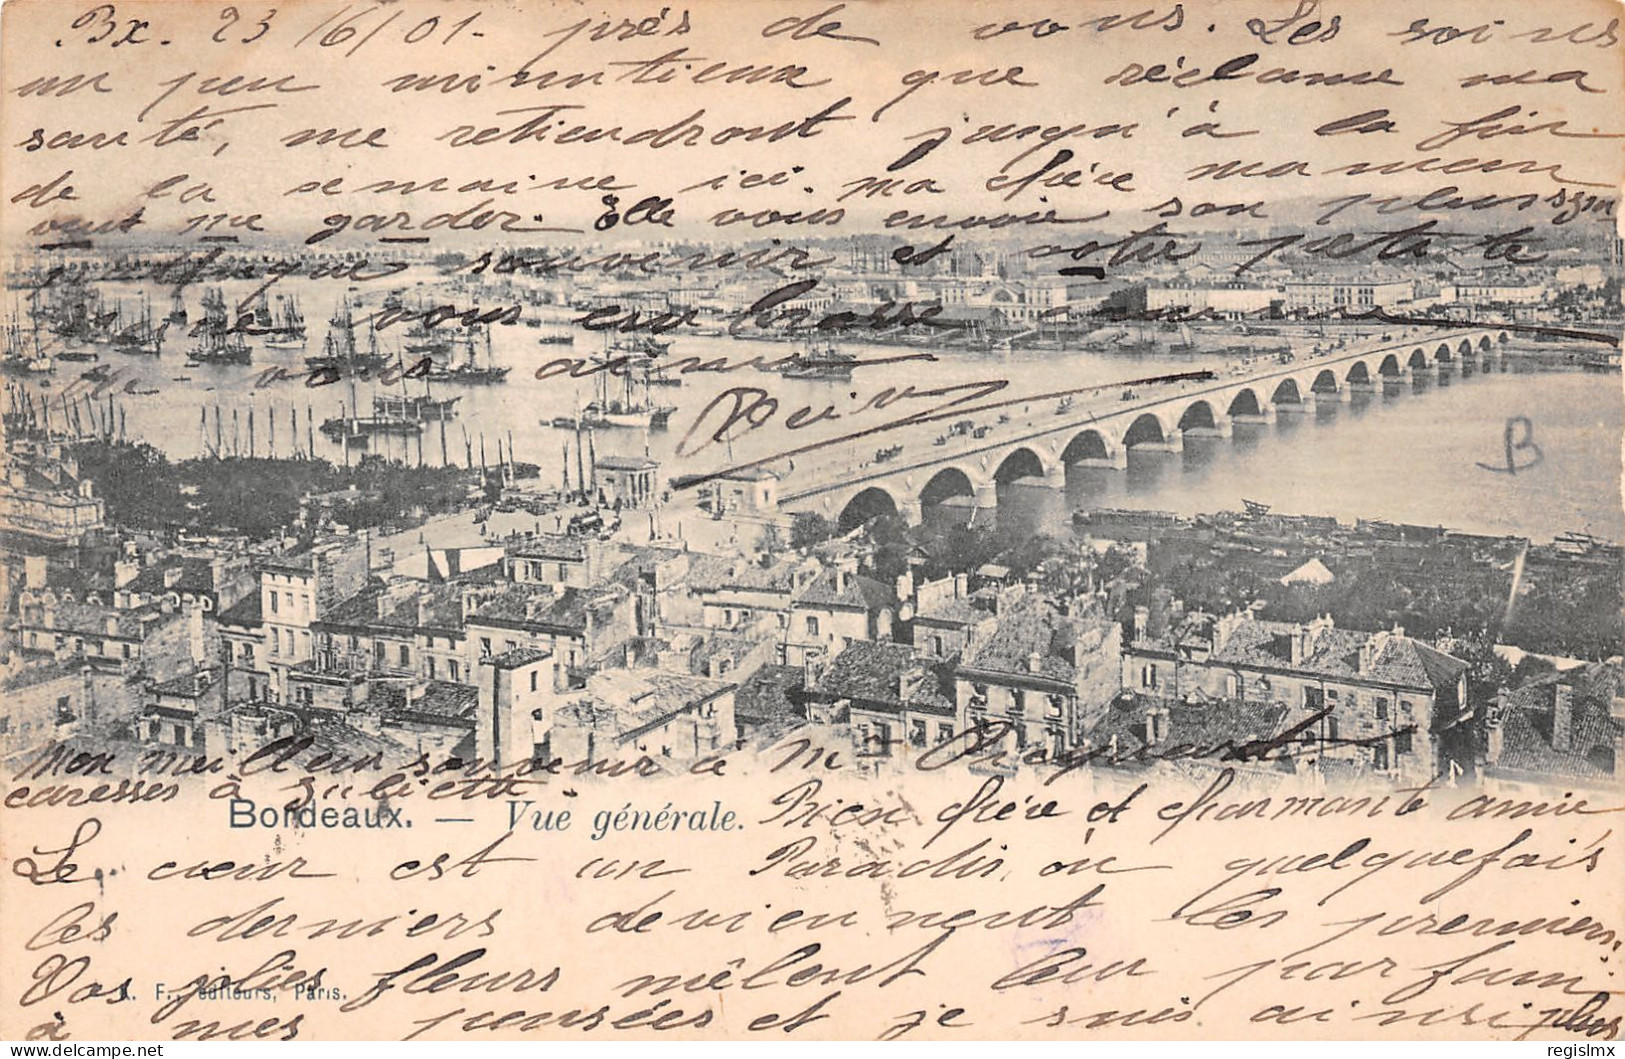 Bx. 23/6/01. près de vous. Les soins
un peu minutieux que réclame ma
santé, me retiendront jusqu'à la fin
de la semaine ici. Ma chère maman
veut me garder. Elle vous envoie son plus
souvenir et votre petite
vous embrasse comme
vous aime
B
Mon meilleur souvenir à Mme
caresses à Juliette
Bordeaux. — Vue générale.
Bien chère et charmante amie
Le cœur est un Paradis, où quelquefois
les derniers deviennent les premiers.
Vos jolies fleurs mêlent leur parfum
A. F., éditeurs, Paris.
à mes pensées et je suis ainsi plus
regislmx